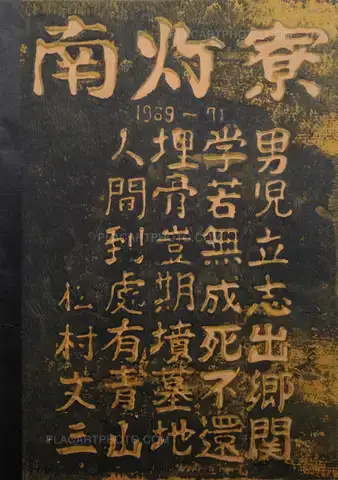 南灯寮
1969-71
男児立志出郷関
学若無成死不還
埋骨豈期墳墓地
人間到處有青山
仁村文三
PLACARTPHOTO.COM
PLACARTPHOTO.COM
PLACARTPHOTO.COM